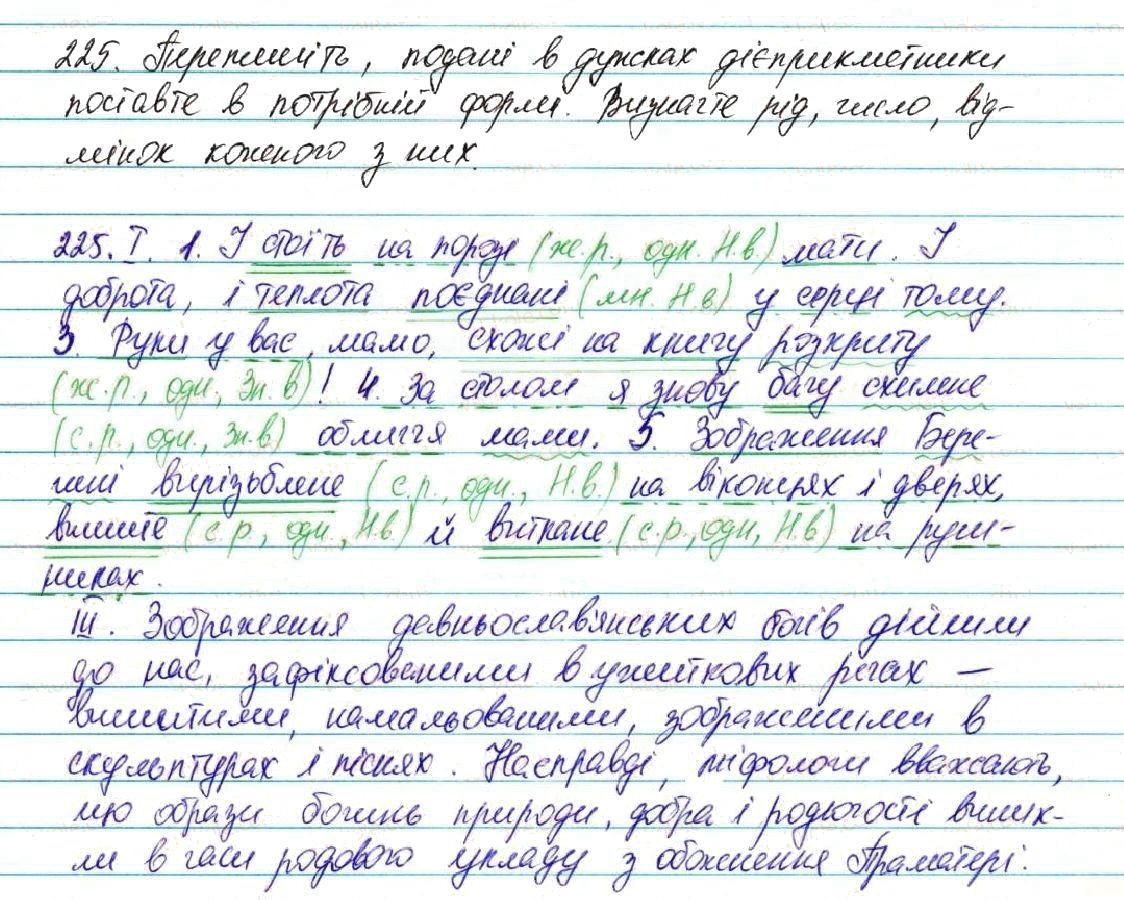 225. Перепишіть, подані в дужках дієприкметники
поставте в потрібній формі. Визначте рід, число, від-
мінок кожного з них.
225. І. 1. І стоїть на порозі (ж.р., одн. Н.в.) мати. І
доброта, і теплота поєднані (мн. Н.в) у серці тому.
3. Руки у вас, мамо, схожі на книгу розкриту
(ж.р., одн., Зн.в)! 4. За столом я знову бачу схилене
(с.р., одн., Зн.в) обличчя мами. 5. Зображення Бере-
гині вирізьблене (с.р., одн., Н.в.) на віконцях і дверях,
вишите (с.р., одн., Н.в.) й виткане (с.р., одн, Н.в) на руш-
никах.
ІІІ. Зображення давньослав'янських богів дійшли
до нас, зафіксованими в ужиткових речах —
вишитими, намальованими, зображеними в
скульптурах і піснях. Насправді, міфологи вважають,
що образи богинь природи, добра і родючості виник-
ли в часи родового укладу з обожнення Праматері.